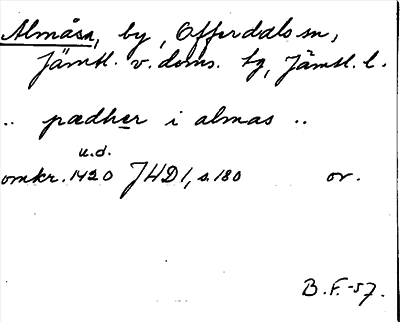 Almåsa, by, Offerdals sn,
Jämtl. v. doms. tg, Jämtl. l.
.. pædher i almas ..
u.d.
omkr. 1420 JHD 1, s. 180 or.
B.F.-57.